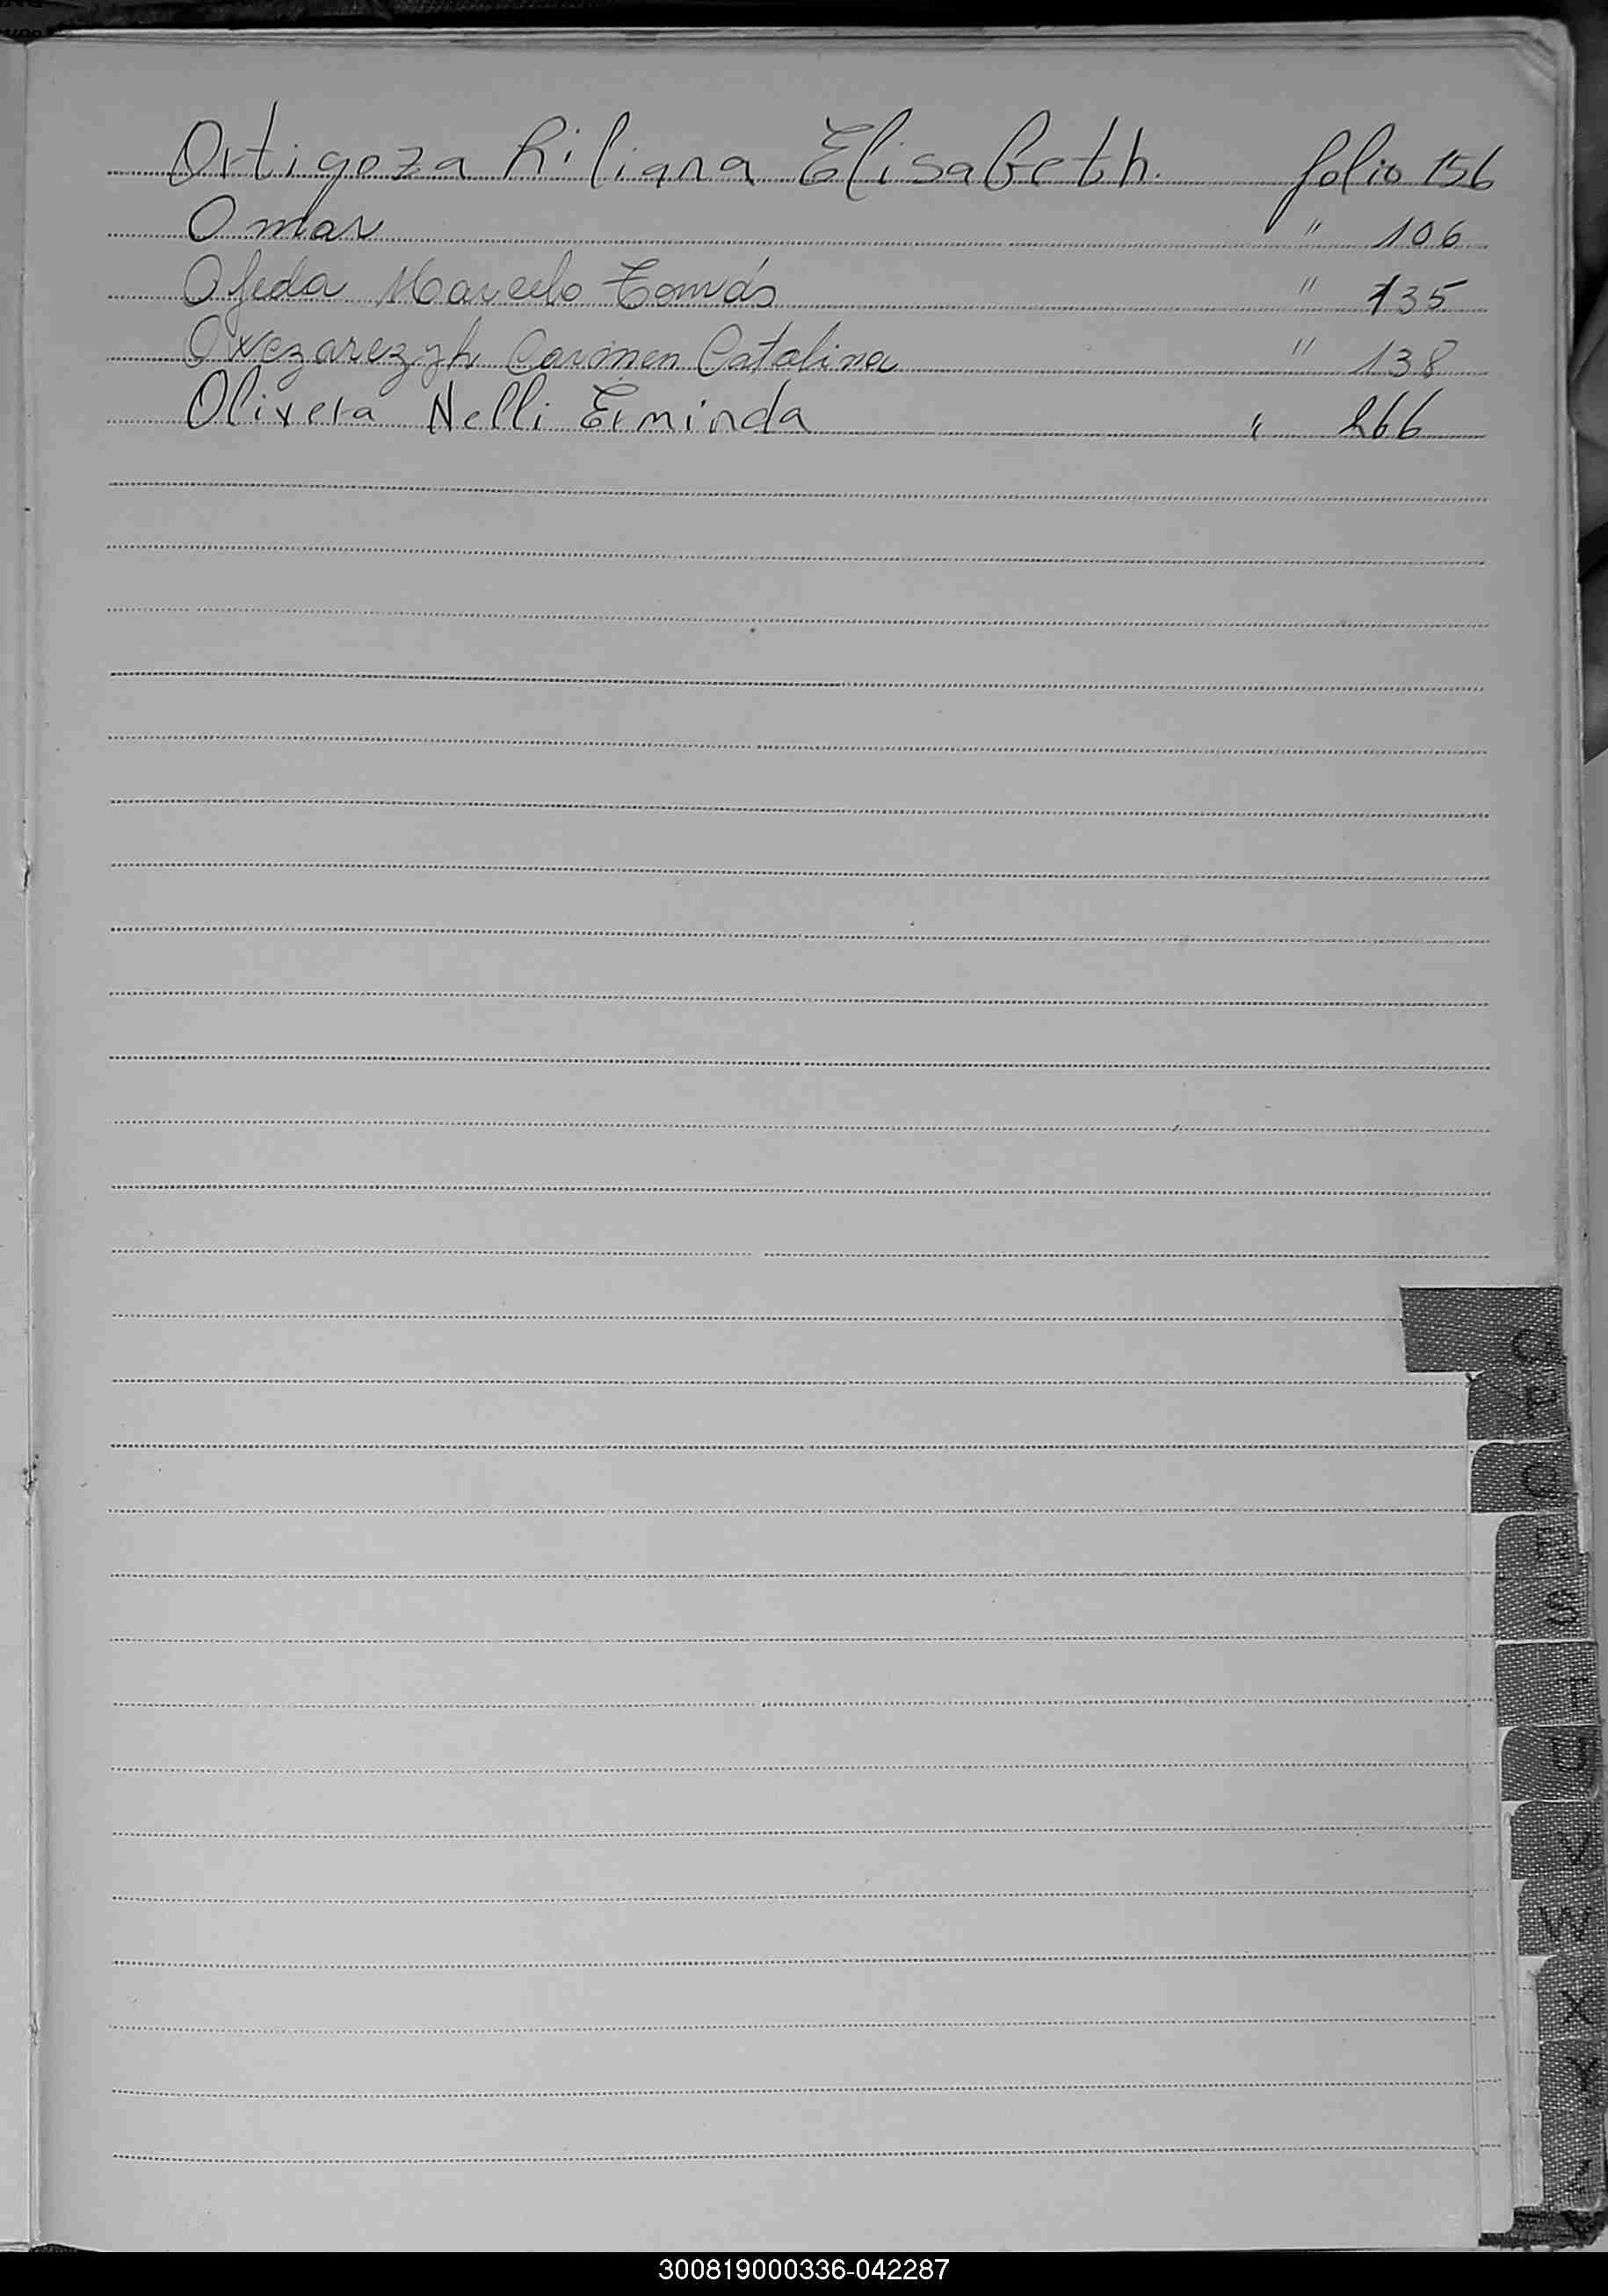 Ortigoza Liliana Elisabeth. folio 156
Omar " 106
Ojeda Marcelo Tomás " 135
Owezarezyh Carmen Catalina " 138
Olivera Nelli Erminda " 266
O
P
Q
R
S
T
U
V
W
X
Y
300819000336-042287